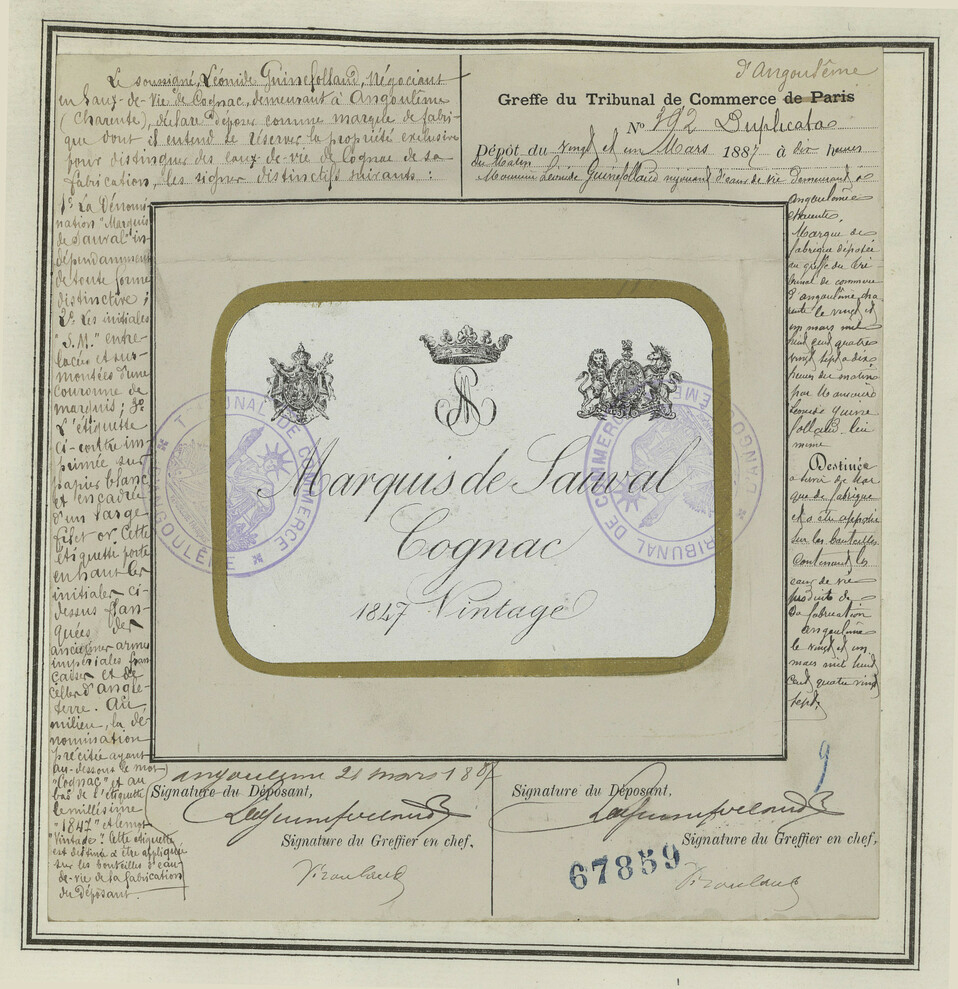 Le soussigné, Léonide Guinefolleaud, Négociant
en Eaux-de-Vie de Cognac, demeurant à Angoulême
(Charente), déclare déposer comme marque de fabri-
que dont il entend se réserver la propriété exclusive
pour distinguer des eaux-de-vie de Cognac de sa
fabrication, les signes distinctifs suivants :
1º La Dénomi-
nation "Marquis
de Sauval" in-
dépendamment
de toute forme
distinctive ;
2º Les initiales
"S.M." entre-
lacées et sur-
montées d'une
couronne de
marquis ; 3º
L'étiquette
ci-contre im-
primée sur
papier blanc
et encadrée
d'un large
filet or. Cette
étiquette porte
en haut les
initiales ci-
dessus flan-
quées des
anciennes armes
impériales fran-
çaises et de
celles d'Angle-
terre. Au
milieu, la dé-
nomination
précitée ayant
au-dessous le mot
"Cognac" et au
bas de l'étiquette
le millésime
"1847" et le mot
"Vintage". Cette étiquette
est destinée à être appliquée
sur les bouteilles d'eau-
de-vie de la fabrication
du Déposant.
d'Angoulême
Greffe du Tribunal de Commerce de Paris
Nº 792 Duplicata
Dépôt du vingt et un Mars 1887 à dix heures
du Matin
Monsieur Léonide Guinefolleaud négociant d'eaux de vie demeurant à
Angoulême
charente.
Marque de
fabrique déposée
au greffe du Tri-
bunal de commerce
d'angoulême cha-
rente le vingt et
un mars mil
huit cent quatre
vingt sept à dix
heures du matin
par Monsieur
Léonide Guine
folleaud lui
même
Destinée
à servir de Mar
que de fabrique
et à être apposée
sur les bouteilles
contenant les
eaux de vie
produits de
sa fabrication
angoulême
le vingt et un
mars mil huit
cent quatre vingt
sept
SM
Marquis de Sauval
Cognac
1847 Vintage
TRIBUNAL DE COMMERCE
ANGOULÊME
TRIBUNAL DE COMMERCE
ANGOULÊME
angoulême 21 mars 1887
Signature du Déposant,
Signature du Greffier en chef,
Signature du Déposant,
Signature du Greffier en chef,
9
67859